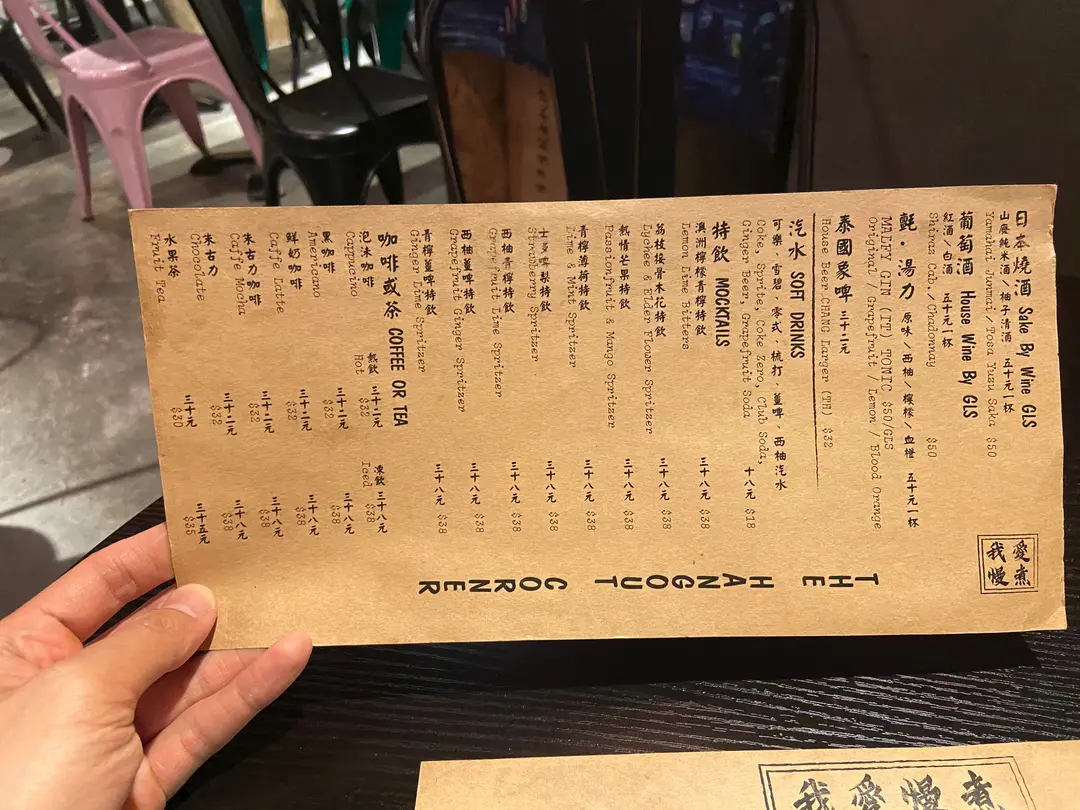 日本燒酒 Sake By Wine GLS
山廢純米酒／柚子清酒 五十元一杯
Yamahai Junmai/Tosa Yuzu Saka $50
葡萄酒 House Wine By GLS
紅酒／白酒 五十元一杯
Shiraz Cab./Chadonnay $50
氈・湯力 原味／西柚／檸檬／血橙 五十元一杯
MALFY GIN (IT) TONIC $50/GLS
Original / Grapefruit / Lemon / Blood Orange
泰國象啤 三十二元
House Beer CHANG Larger (TH) $32
汽水 SOFT DRINKS
可樂、雪碧、零式、梳打、薑啤、西柚汽水 十八元
Coke, Sprite, Coke Zero, Club Soda,
Ginger Beer, Grapefruit Soda $18
特飲 MOCKTAILS
澳洲檸檬青檸特飲 三十八元
Lemon Lime Bitters $38
荔枝接骨木花特飲 三十八元
Lychee & Elder Flower Spritzer $38
熱情芒果特飲 三十八元
Passionfruit & Mango Spritzer $38
青檸薄荷特飲 三十八元
Lime & Mint Spritzer $38
士多啤梨特飲 三十八元
Strawberry Spritzer $38
西柚青檸特飲 三十八元
Grapefruit Lime Spritzer $38
西柚薑啤特飲 三十八元
Grapefruit Ginger Spritzer $38
青檸薑啤特飲 三十八元
Ginger Lime Spritzer $38
咖啡或茶 COFFEE OR TEA
熱飲 凍飲
Hot Iced
泡沫咖啡 三十二元 三十八元
Cappucino $32 $38
黑咖啡 三十二元 三十八元
Americano $32 $38
鮮奶咖啡 三十二元 三十八元
Caffe Latte $32 $38
朱古力咖啡 三十二元 三十八元
Caffe Mocha $32 $38
朱古力 三十二元 三十八元
Chocolate $32 $38
水果茶 三十元 三十五元
Fruit Tea $30 $35
THE HANGOUT CORNER
我愛慢煮
我愛慢煮